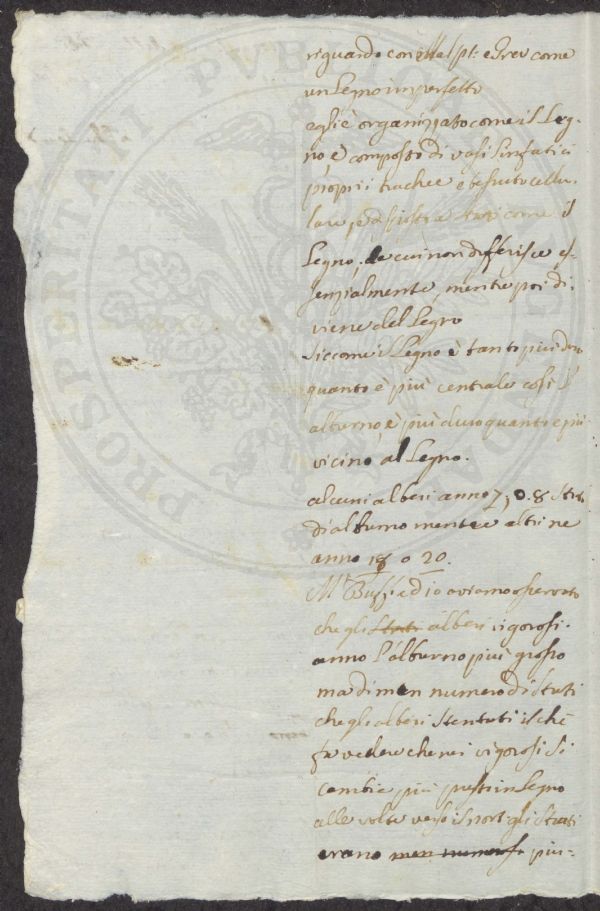 riguardo con il pt: e Grev come
un Legno imperfetto
egli è organizzato come il Leg-
no, è composto di vasi linfatici
proprii trachee e tessuto cellu-
lare, ed si mostra strati come il
Legno, da cui non differisce es-
senzialmente, mentre poi di-
viene del Legno
Siccome il Legno è tanto più duro
quanto è più centrale così l'
alburno è più duro quanto è più
vicino al Legno.
alcuni alberi anno 7, o 8 strati
di alburno mentre altri ne
anno 18 o 20.
Mr Buff: ed io aviamo osservato
che gli Strati alberi vigorosi
anno l'alburno più grosso
ma di men numero di Strati
che gli alberi Stentati il chè
fa vedere che nei vigorosi si
cambia più presto in Legno
alle volte verso il nort gli Strati
erano men numerosi più-
PROSPERITATI PVBLICAE AVGENDAE